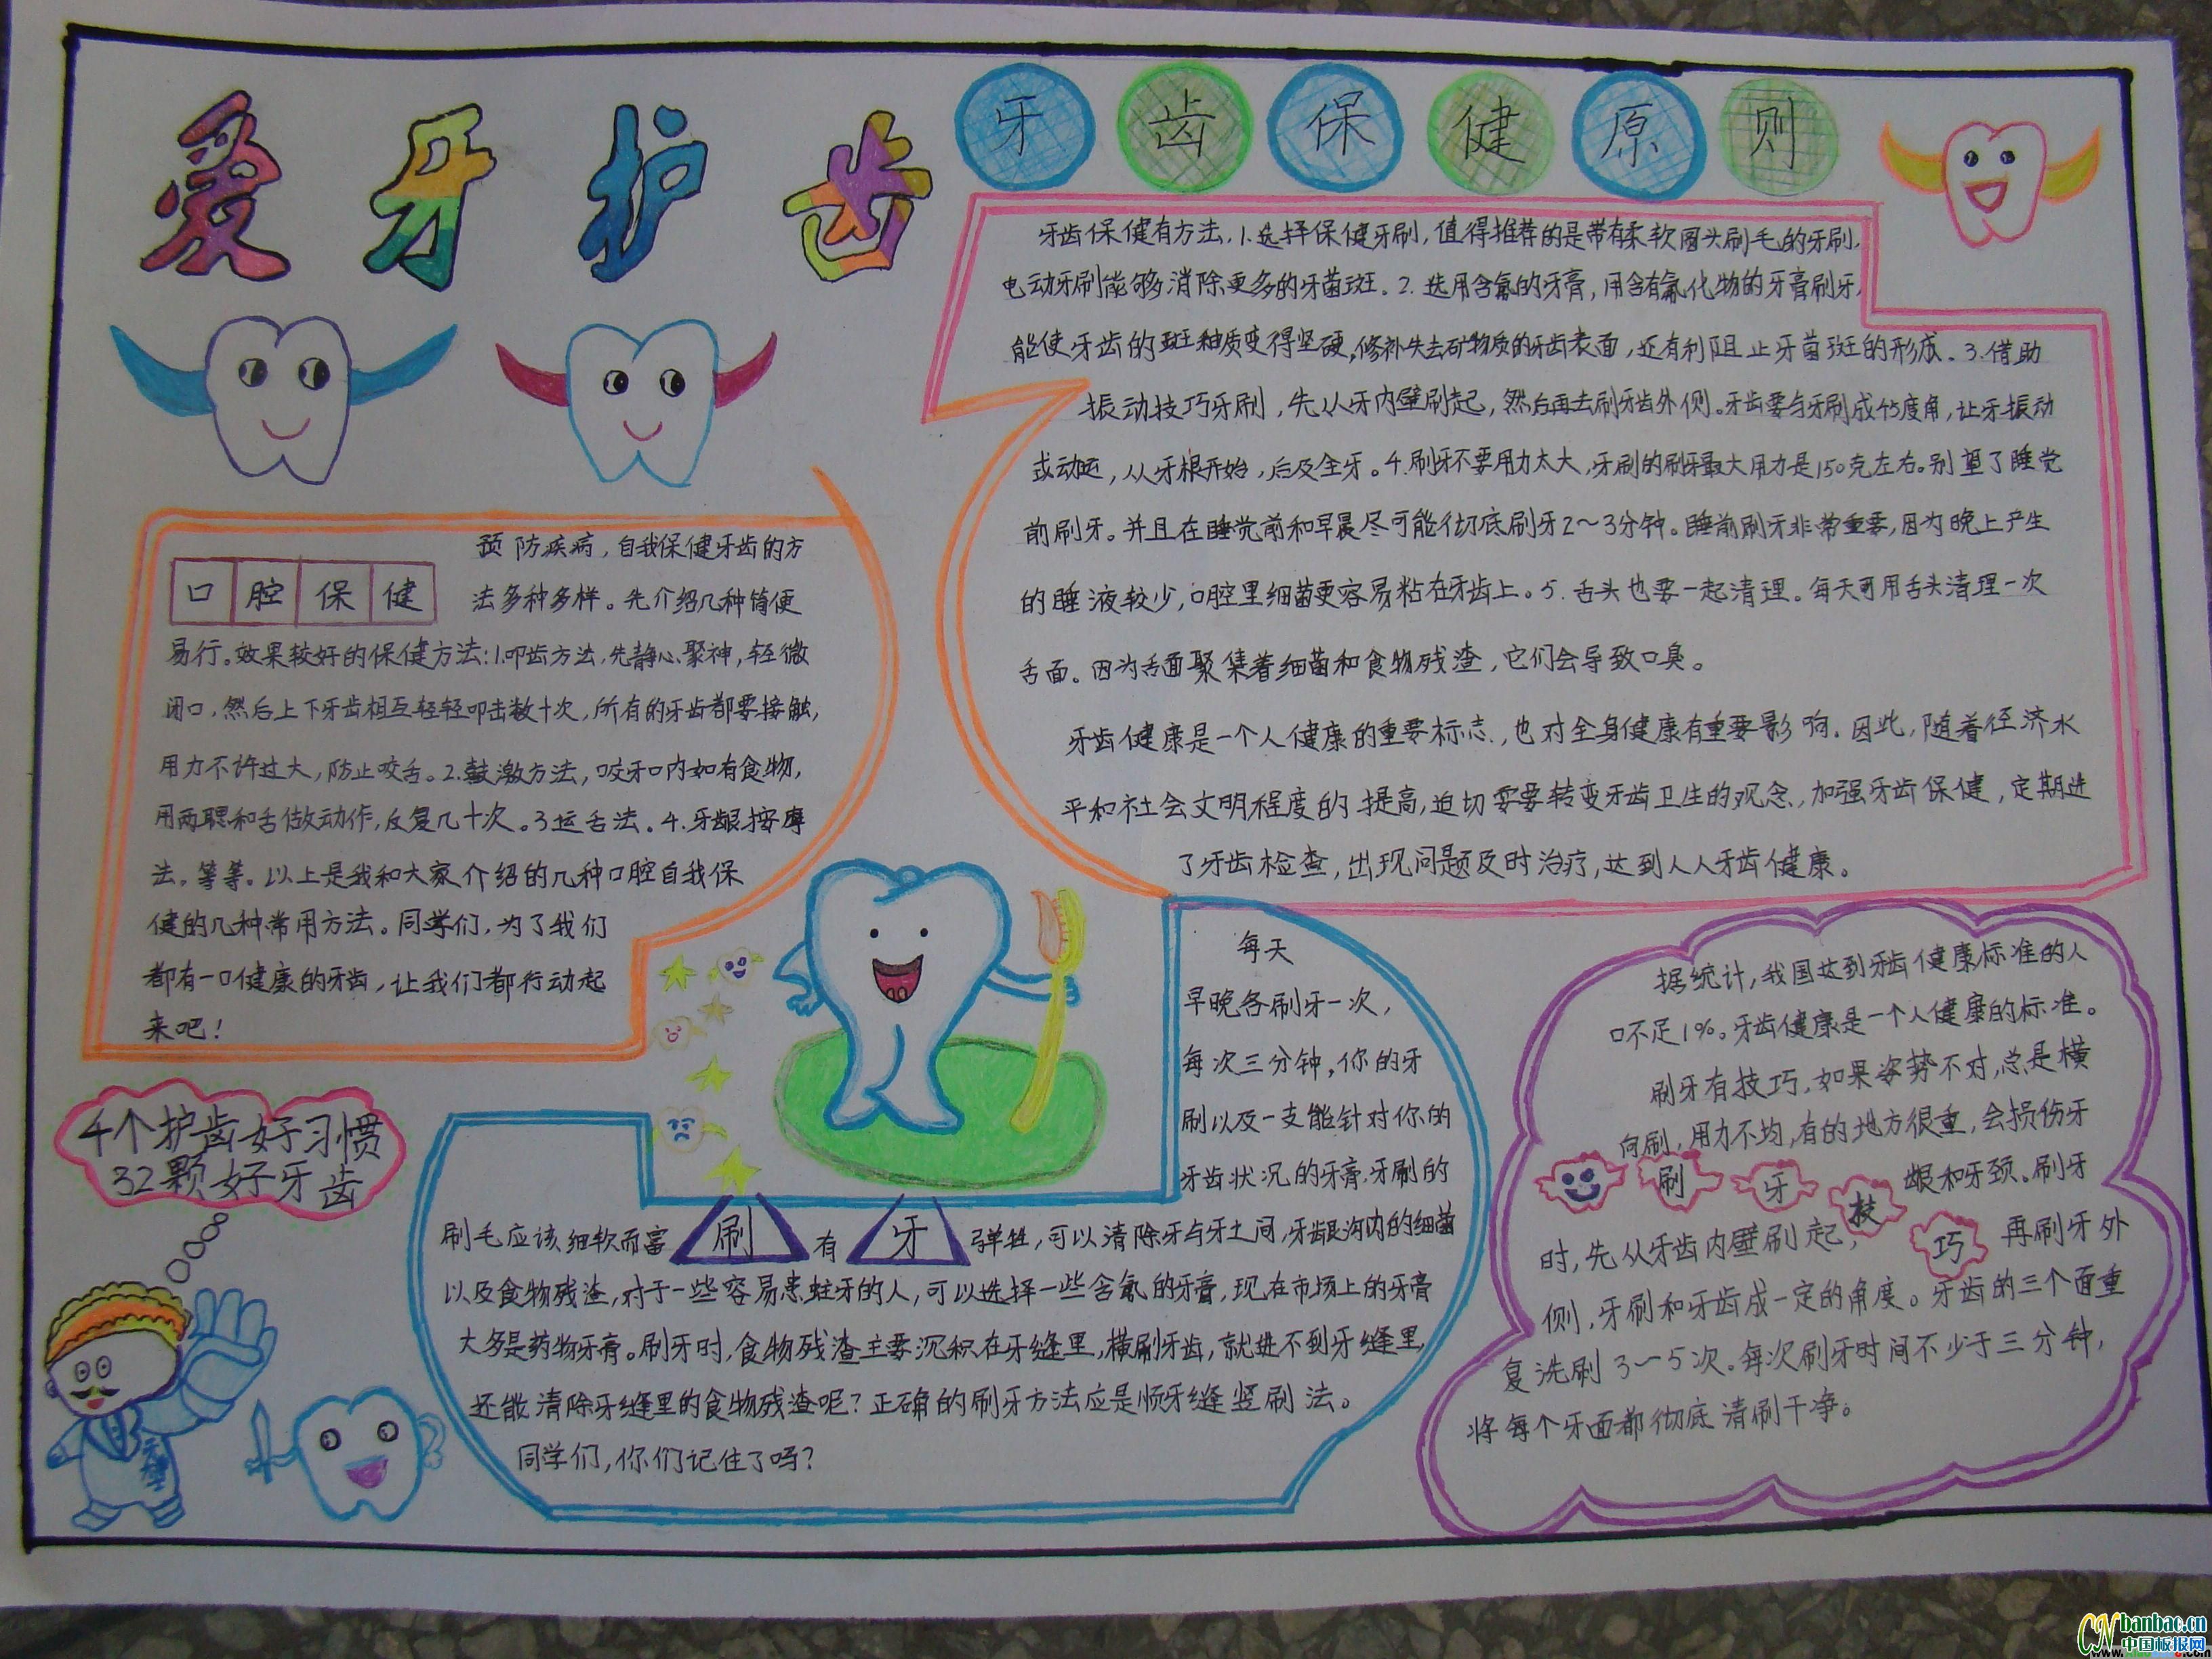 爱牙护齿
牙齿保健原则
牙齿保健有方法,1.选择保健牙刷,值得推荐的是带有柔软圆头刷毛的牙刷,
电动牙刷能够消除更多的牙菌斑。2.选用含氟的牙膏,用含有氟化物的牙膏刷牙,
能使牙齿的斑釉质变得坚硬,修补失去矿物质的牙齿表面,还有利阻止牙菌斑的形成.3.借助
振动技巧牙刷,先从牙内壁刷起,然后再去刷牙齿外侧。牙齿要与牙刷成45度角,让牙振动
或动运,从牙根开始,后及全牙。4.刷牙不要用力太大,牙刷的刷牙最大用力是150克左右。别望了睡觉
前刷牙。并且在睡觉前和早晨尽可能彻底刷牙2~3分钟。睡前刷牙非常重要,因为晚上产生
的睡液较少,口腔里细菌更容易粘在牙齿上。5.舌头也要一起清理。每天可用舌头清理一次
舌面。因为舌面聚集着细菌和食物残渣,它们会导致口臭。
牙齿健康是一个人健康的重要标志,也对全身健康有重要影响.因此,随着经济水
平和社会文明程度的提高,迫切需要转变牙齿卫生的观念,加强牙齿保健,定期进
了牙齿检查,出现问题及时治疗,达到人人牙齿健康。
口腔保健
预防疾病,自我保健牙齿的方
法多种多样。先介绍几种简便
易行。效果较好的保健方法:1.叩齿方法,先静心、聚神,轻微
闭口,然后上下牙齿相互轻轻叩击数十次,所有的牙齿都要接触,
用力不许过大,防止咬舌。2.鼓漱方法,咬牙口内如有食物,
用两腮和舌做动作,反复几十次。3.运舌法。4.牙龈按摩
法。等等。以上是我和大家介绍的几种口腔自我保
健的几种常用方法。同学们,为了我们
都有一口健康的牙齿,让我们都行动起
来吧!
4个护齿好习惯
32颗好牙齿
每天
早晚各刷牙一次,
每次三分钟,你的牙
刷以及一支能针对你的
牙齿状况的牙膏.牙刷的
刷毛应该细软而富刷有牙弹性,可以清除牙与牙之间,牙龈沟内的细菌
以及食物残渣,对于一些容易患蛀牙的人,可以选择一些含氟的牙膏,现在市场上的牙膏
大多是药物牙膏。刷牙时,食物残渣主要沉积在牙缝里,横刷牙齿,就进不到牙缝里,
还能清除牙缝里的食物残渣呢?正确的刷牙方法应是顺牙缝竖刷法。
同学们,你们记住了吗?
据统计,我国达到牙齿健康标准的人
口不足1%。牙齿健康是一个人健康的标准。
刷牙有技巧,如果姿势不对,总是横
向刷,用力不均,有的地方很重,会损伤牙
刷牙技巧
龈和牙颈。刷牙
时,先从牙齿内壁刷起,再刷牙外
侧,牙刷和牙齿成一定的角度。牙齿的三个面重
复洗刷3一5次。每次刷牙时间不少于三分钟,
将每个牙面都彻底清刷干净。
CN banbao.cn
中国板报网